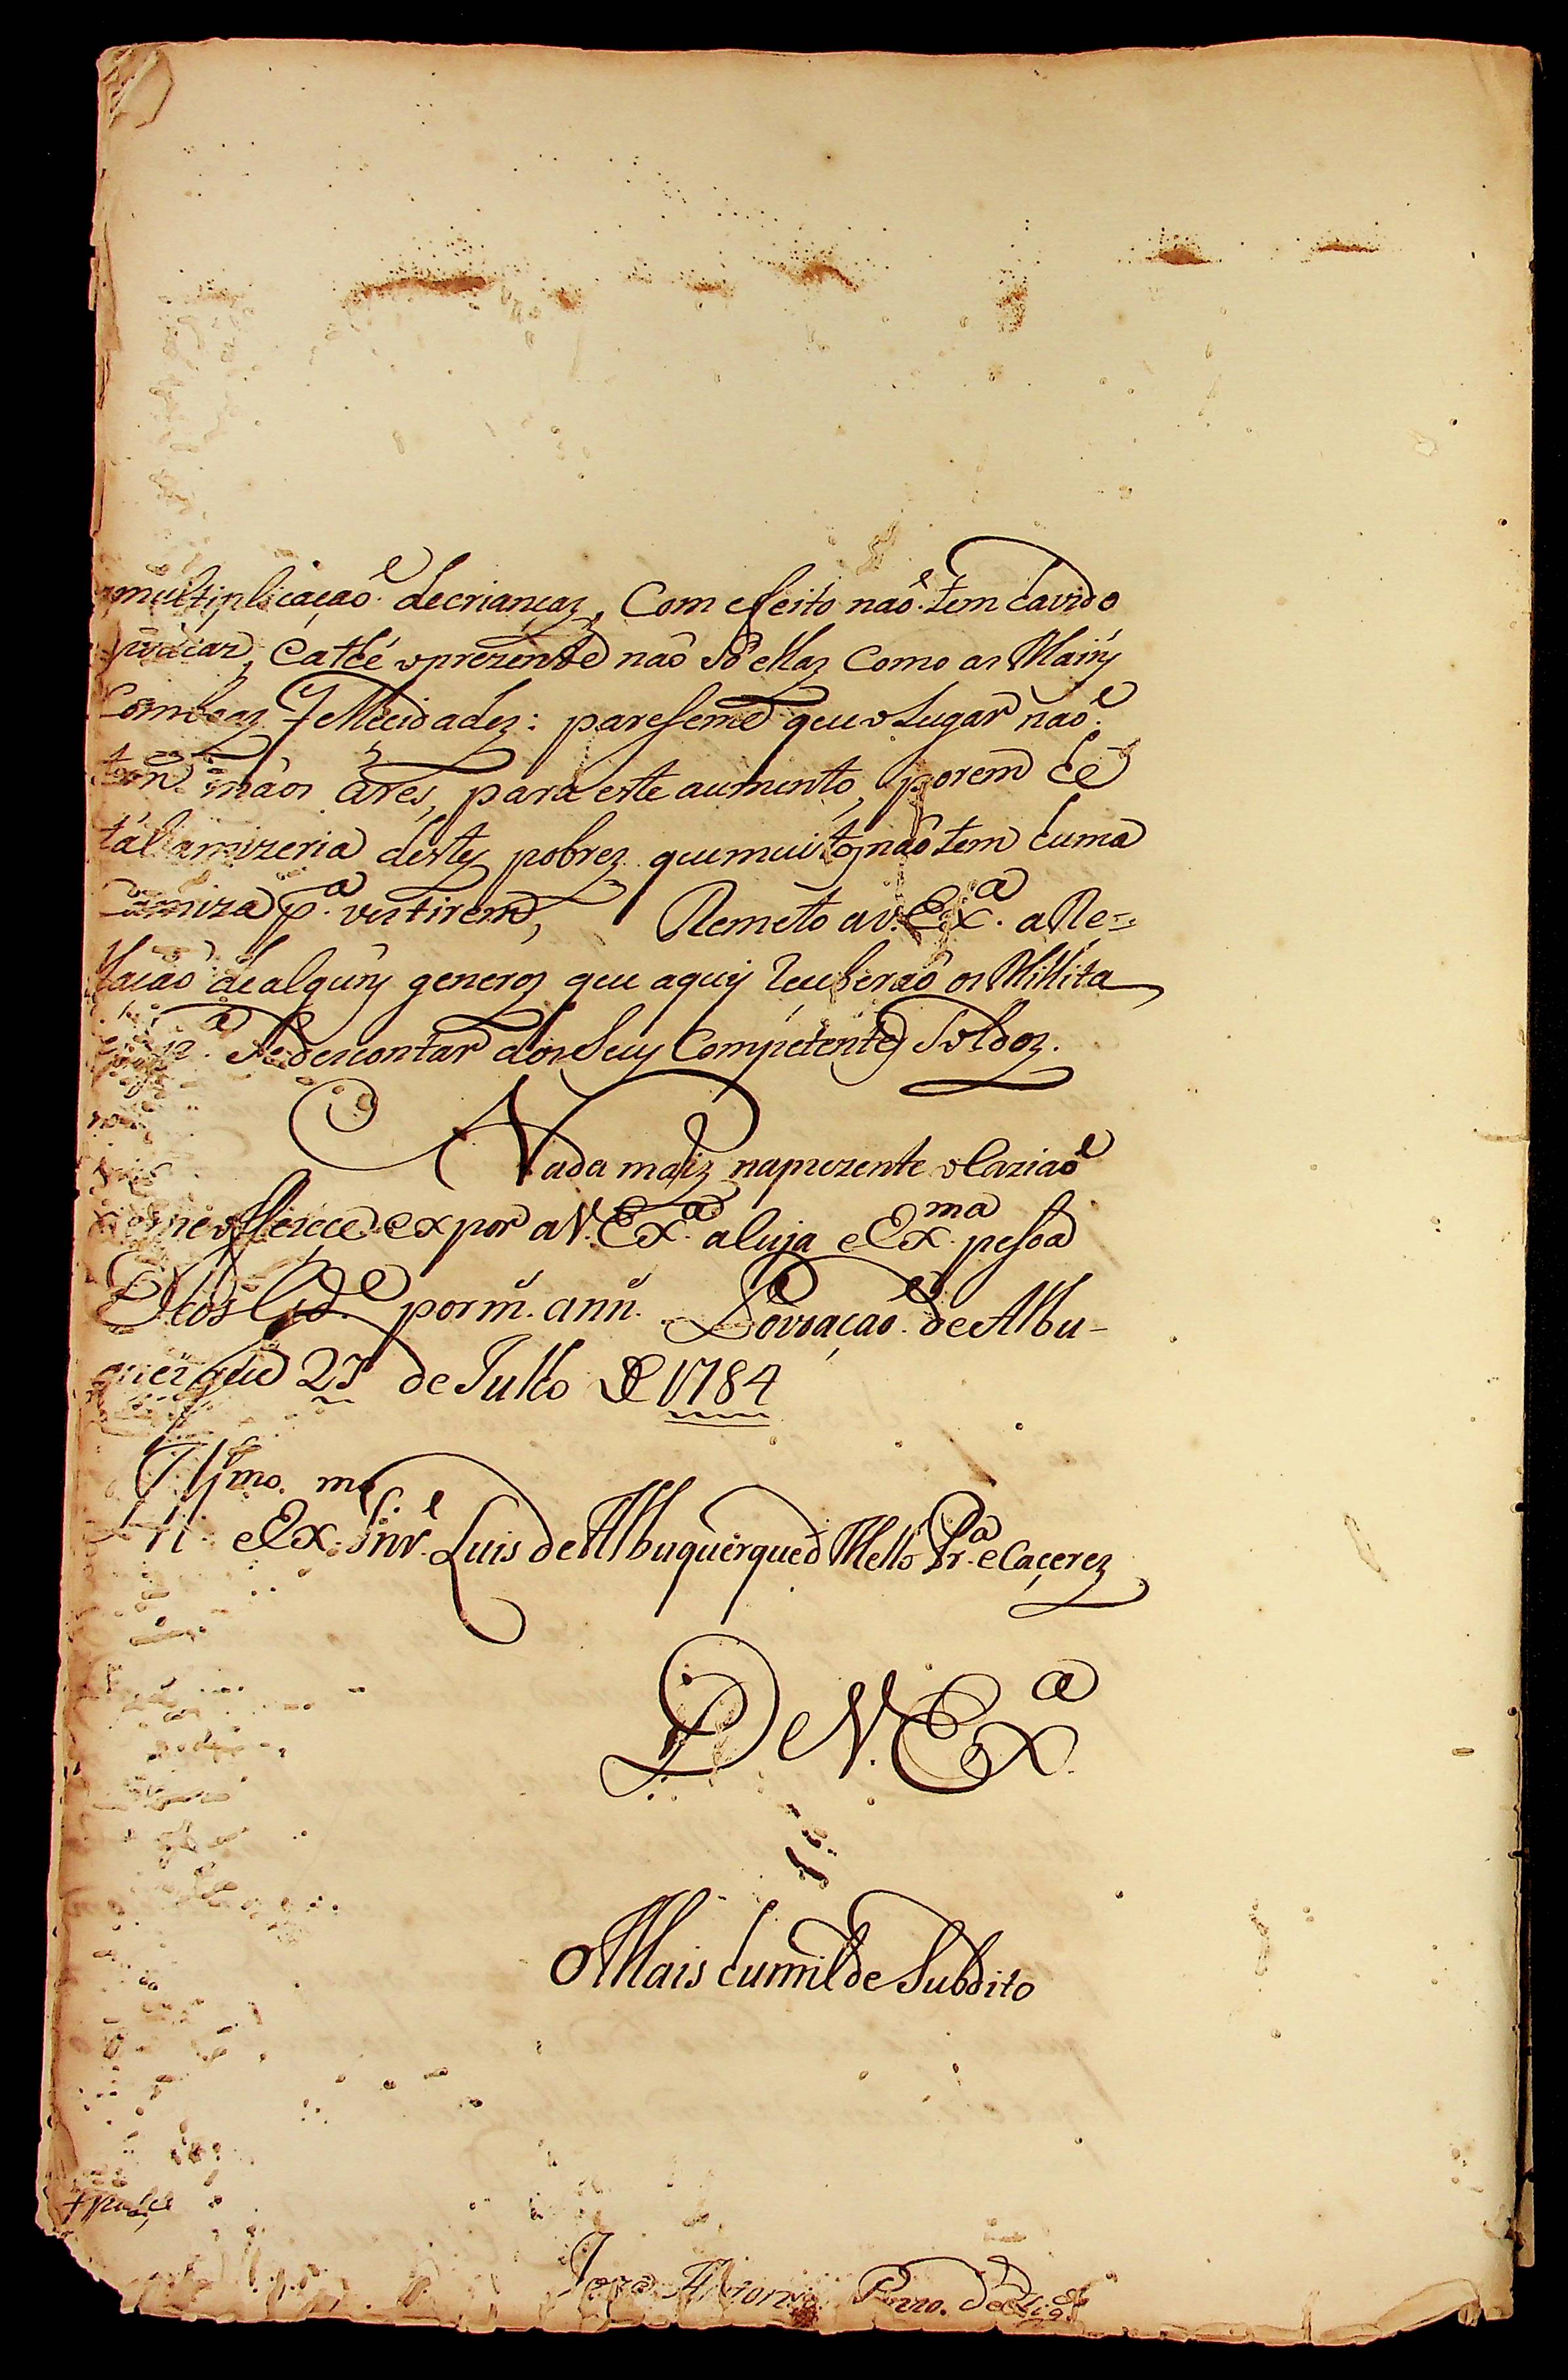 multiplicaçaõ de criançaz, Com efeito naõ tem havido
e athé o prezente naõ Só ellaz Como as Maiṅs
Com boaz Felleçidadez: pareseme que o Lugar naõ
tem máos áres, para este aumento, porem he
tál a mizeria destes pobrez que muitos naõ tem huma
Camiza p.ª vestirem, Remeto a V. Ex.ª a Re=
lacaõ de alguñs generoz que aquy receberaõ os Millita
p.ª Se descontar dos Seus Competentes Soldoz.
Nada maiz na prezente ocaziaõ
me offerece expor a V. Ex.ª a cuja e Ex.ma pesoa
Deos G.de por m.s ann.s Povoaçaõ de Albu-
querque 23 de Julho de 1784
Ill.mo e Ex.mo Snr. Luis de Albuquerque d Mello Pr.ª e Caçerez
De V. Ex.ª
O Mais humilde Subdito
Joze Antonio Pinto de